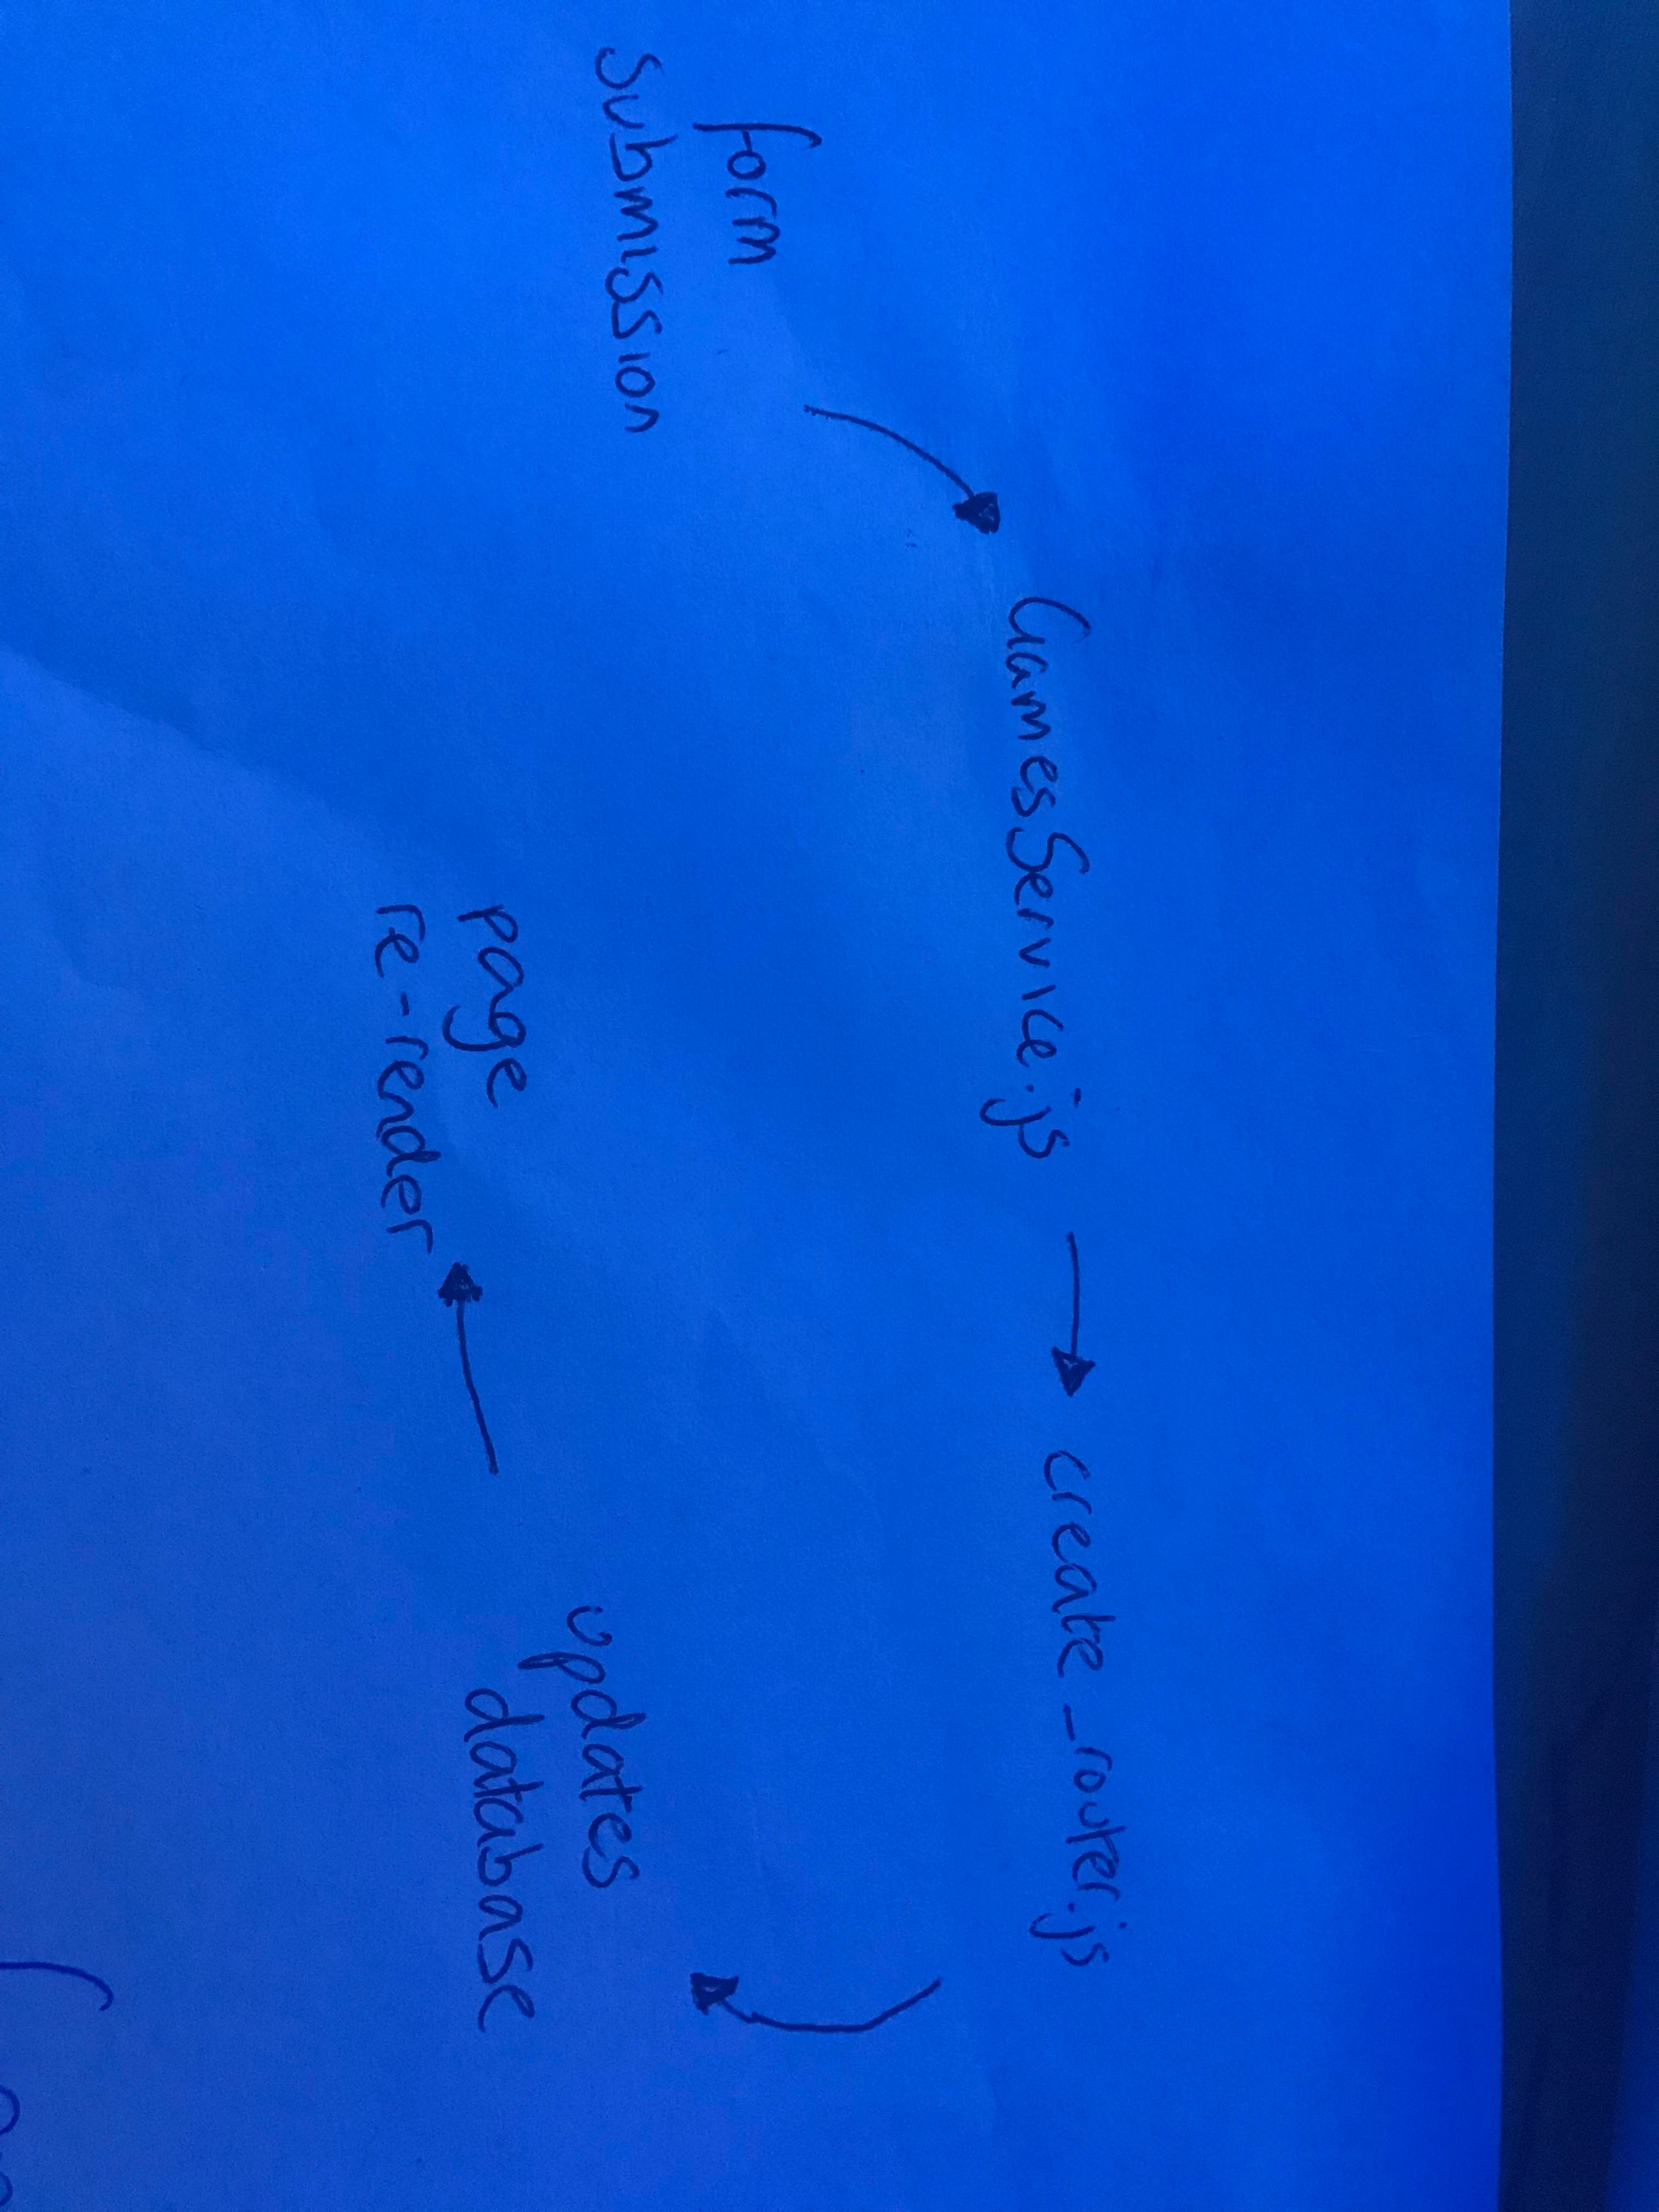 form
submission
GamesService.js
create_router.js
updates
database
page
re-render